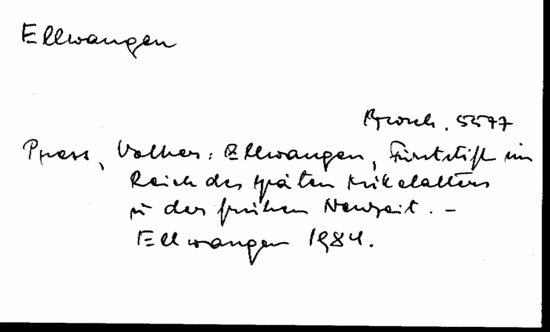 Ellwangen
Brosch. 5577
Press, Volker: Ellwangen, Fürststift im
Reich des späten Mittelalters
u der frühen Neuzeit. –
Ellwangen 1984.